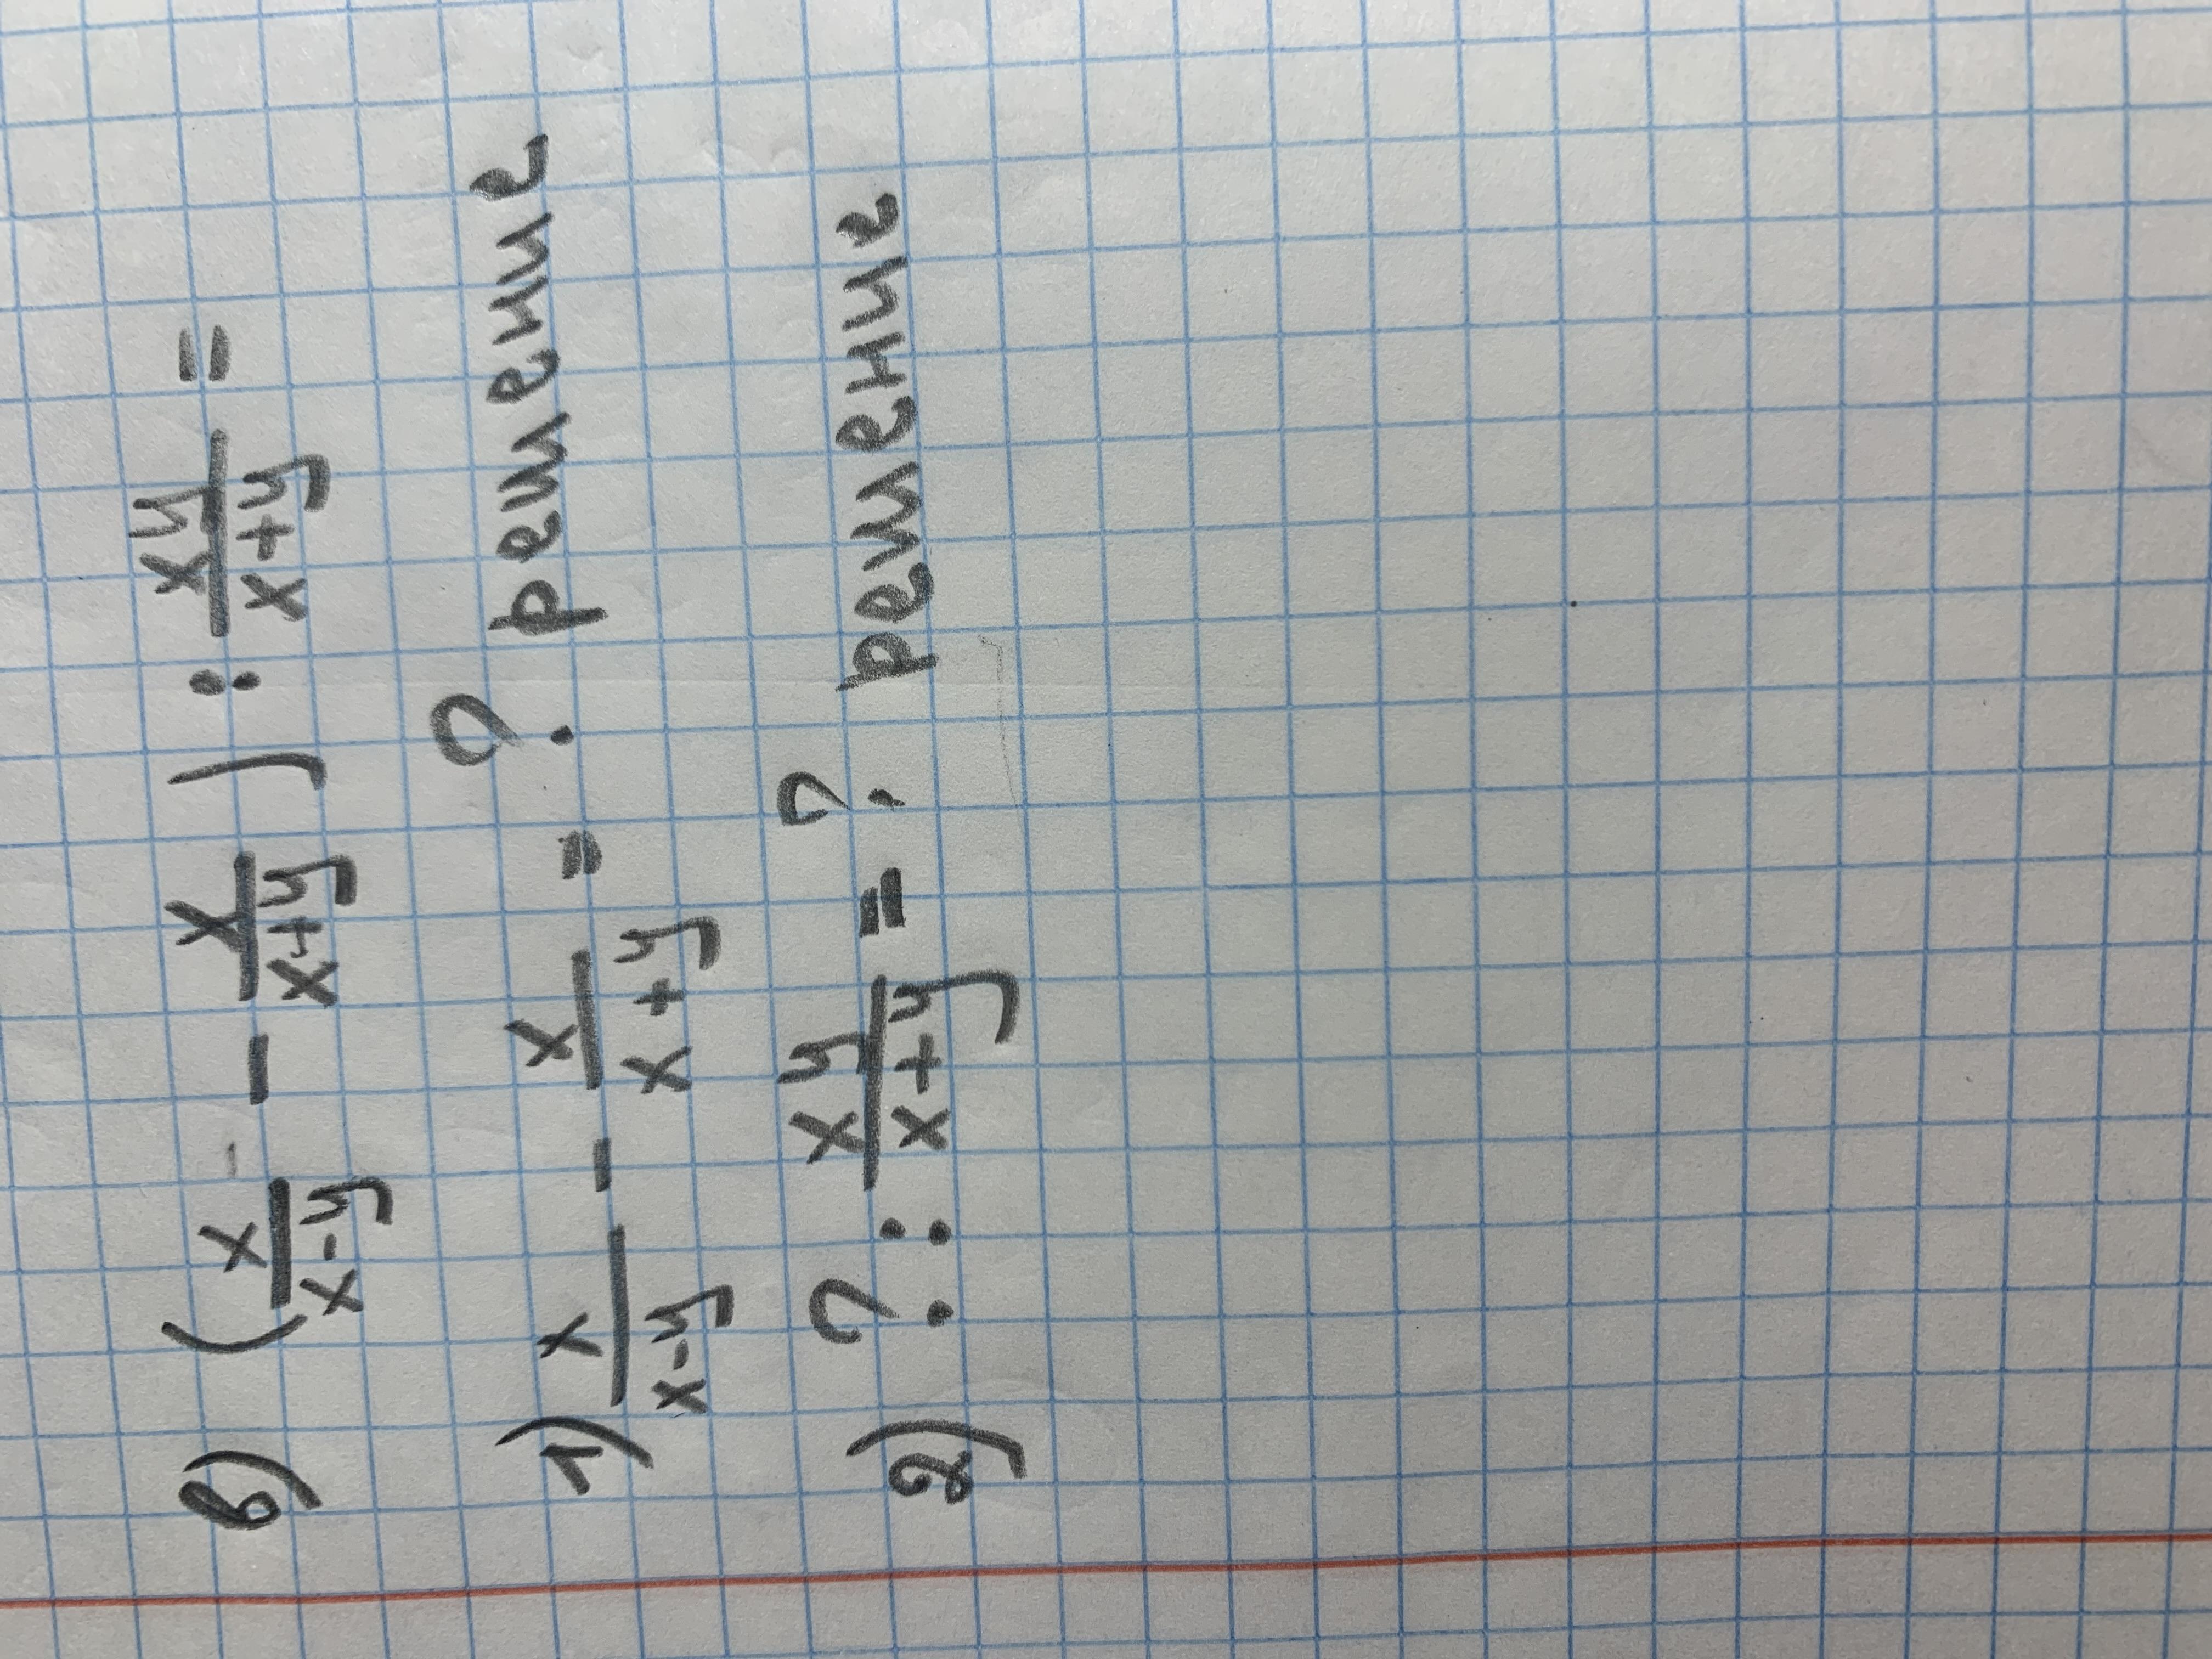 в) (x/x-y - x/x+y) : xy/x+y =
1) x/x-y - x/x+y = ? решение
2) ? : xy/x+y = ? решение